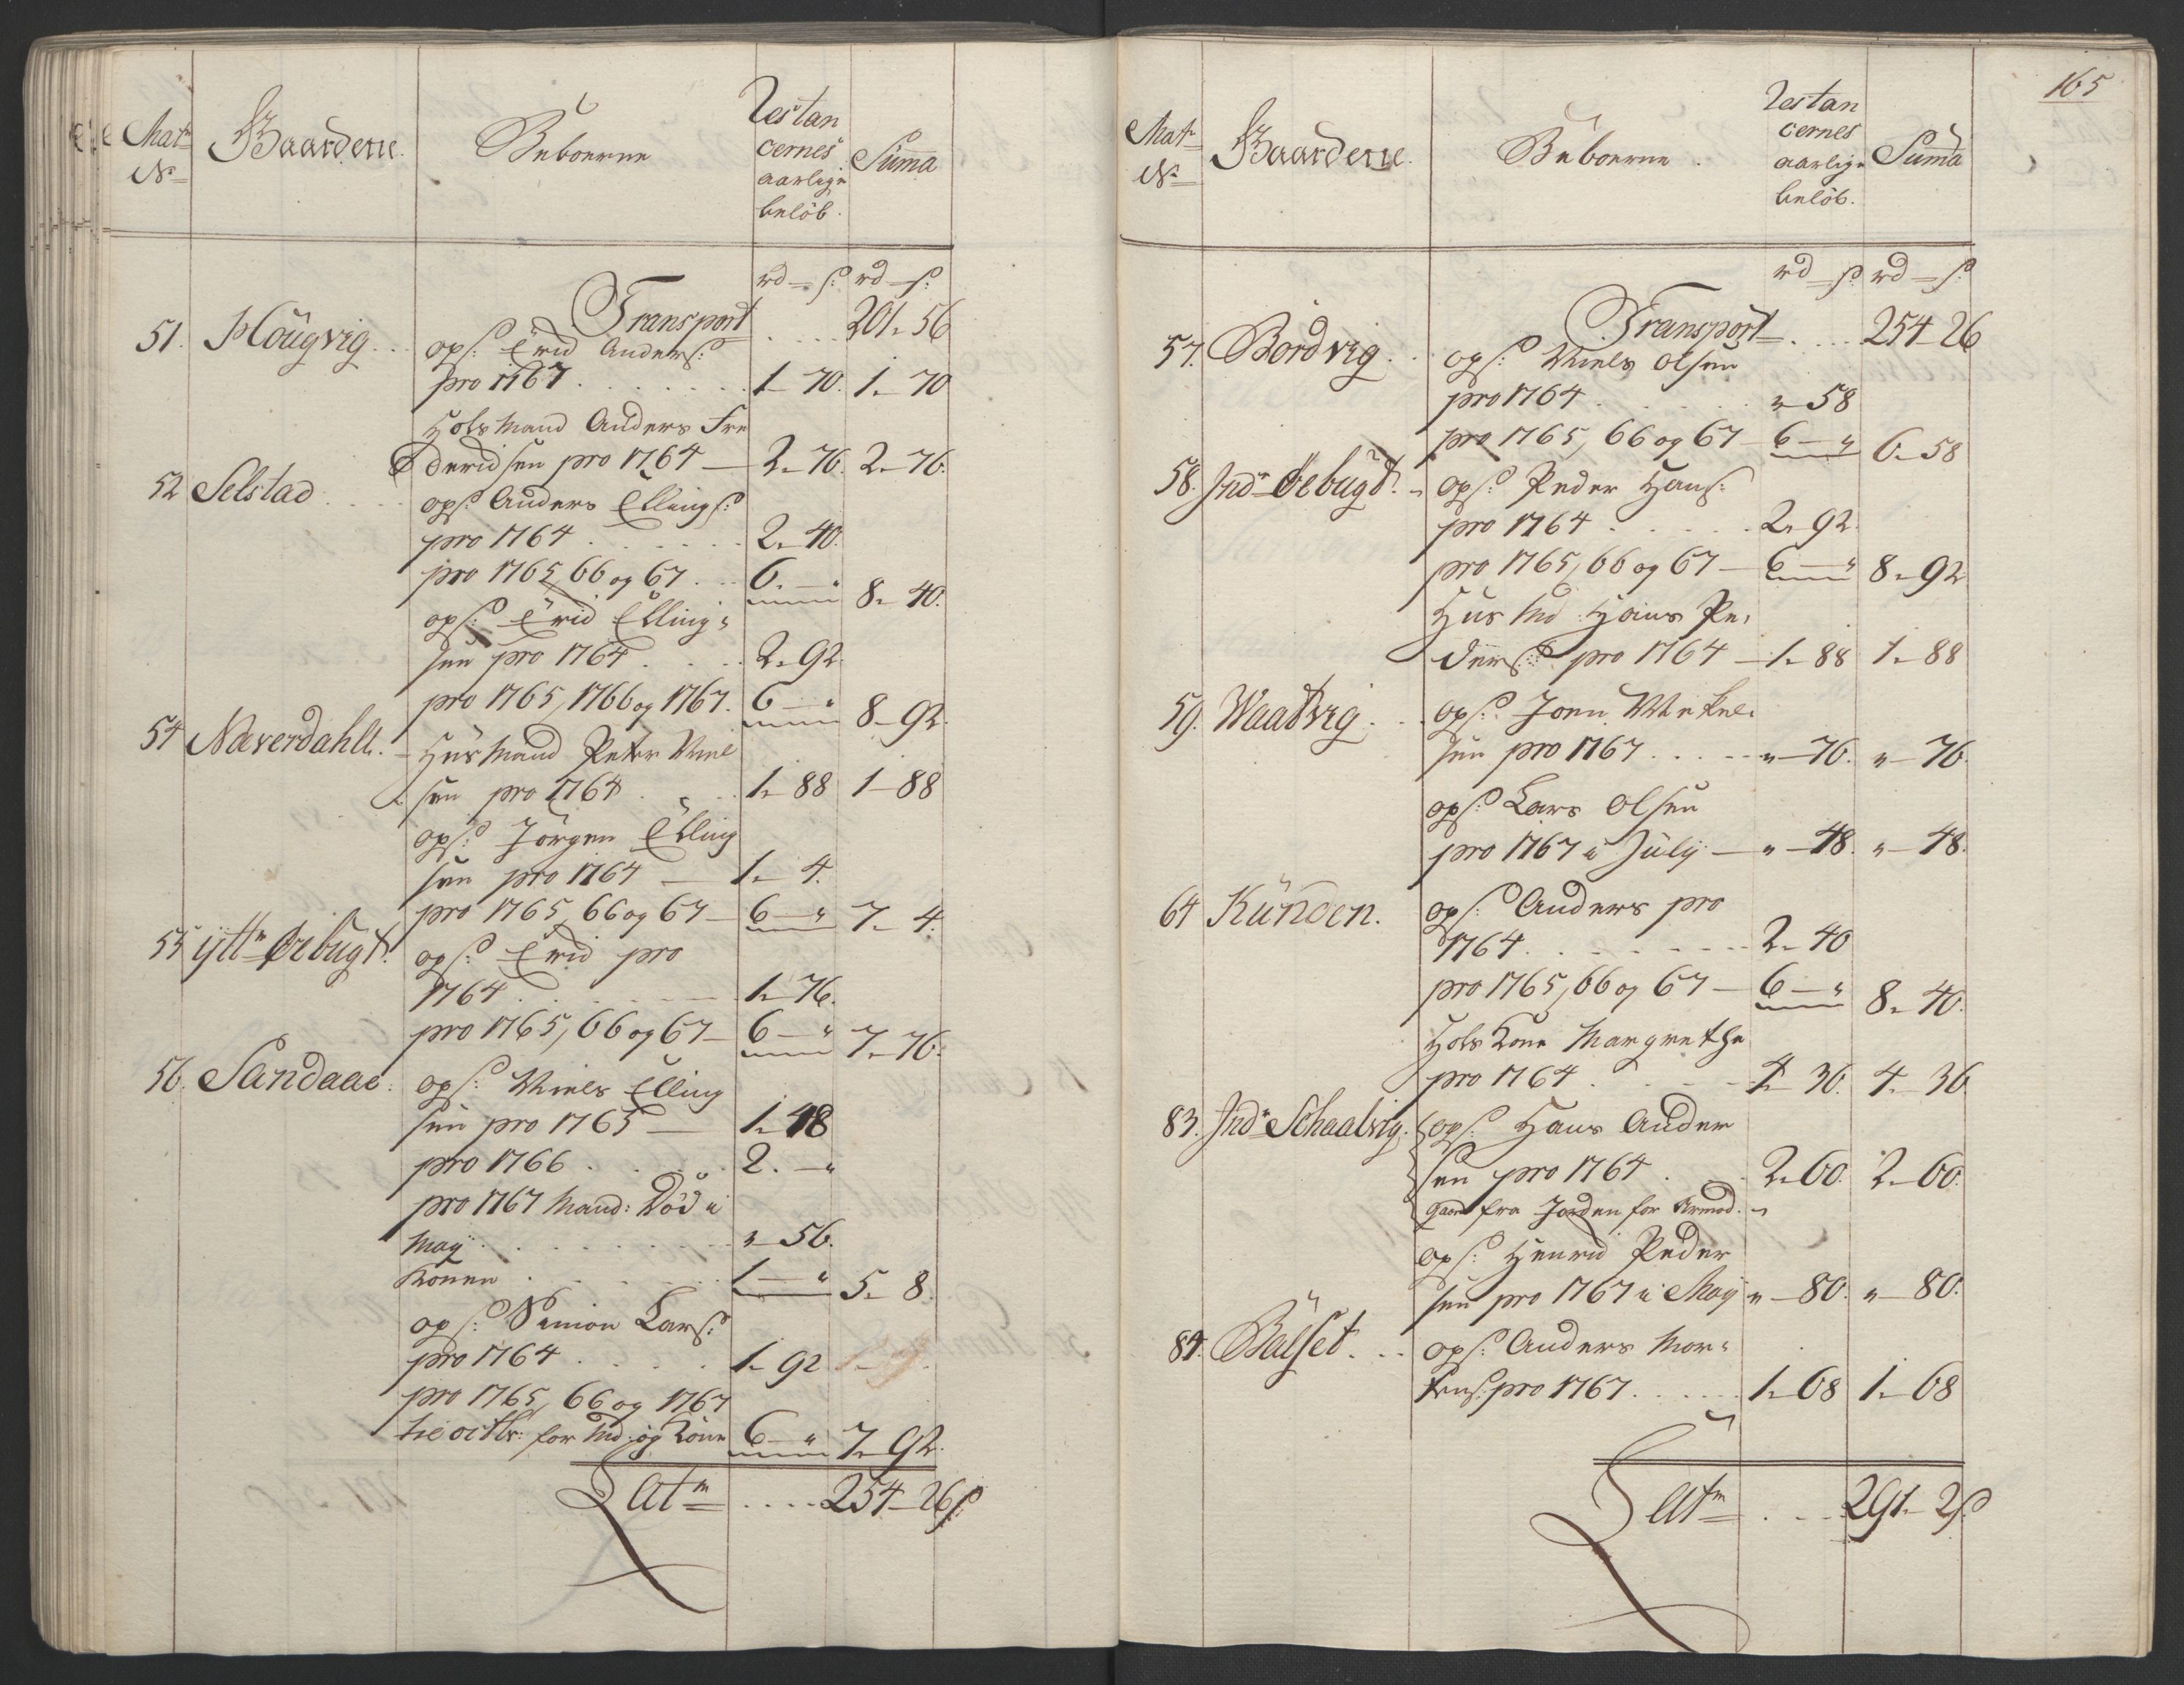 Mat:
No
Gaardene
Beboerne
Restan
cernes
aarlige
beløb.
Suma
rd – s: rd – s:
Transport .... 201. 56
51. Hougvig.. ops: Erid Anders:
pro 1767 . . . . . 1. 70. 1. 70
Hols Mand Anders Fre
deridsen pro 1764 — 2. 76. 2. 76.
52 Selstad .... ops: Anders Ellings:
pro 1764 . . . . . 2. 40.
pro 1765, 66 og 67 . . 6. — " 8. 40.
ops: Erid Elling"
sen pro 1764 . . . . 2. 92.
pro 1765, 1766 og 1767. 6 — " 8 – 92.
54 Næverdahll. – Huus Mand Peter Niel
sen pro 1764 . . 1. 88 1 – 88
ops: Jørgen Elling
sen pro 1764 — 1. 4.
pro 1765, 66 og 67 – 6 — " 7. 4.
55 Ytt: Ørbugt. ops: Erid pro
1764 . . . . . 1. 76.
pro 1765, 66 og 67 – 6 — " 7. 76.
56. Sandaae. ops: Niels Elling
sen pro 1765 — 1. 48
pro 1766 . . . . 2. — "
pro 1767 Mand: Død i
May . . . . . . " – 56.
Konen . . . . . 1 — " 5. 8.
ops: Simon Lars:
pro 1764 . . . . 1. 92
pro 1765, 66 og 1767
til octbr: for Md. og Kone 6 — " 7. 92.
Lat: .... 254 – 26 s:
165
Mat:
No
Gaardene.
Beboerne.
Restan
cernes
aarlige
beløb.
Suma
rd – s: rd – s:
Transport .... 254 – 26
57. Bordvig.. ops: Niels Olsen
pro 1764 . . . . " – 58
pro 1765, 66 og 67 – 6 — " 6. 58
58. Ind: Ørbugt. – ops: Peder Hans:
pro 1764 . . . . . 2. 92.
pro 1765, 66 og 67 – 6 — " 8. 92
Huus Md. Hans Pe,
ders: pro 1764 – 1. 88 1. 88
59. Waatvig. . . ops: Joen Mikel.
sen pro 1767 . . . . – " – 76. " – 76.
ops: Lars Olsen
pro 1767 i July — " – 48. " – 48.
64 Kunden. ops: Anders pro
1764. . . . . . 2. 40
pro 1765, 66 og 67 – 6 — " 8. 40.
Hols Kone Margrethe
pro 1764 . . . – 4. 36. 4. 36.
83. Ind: Schaalvig. ops: Hans Ander
sen pro 1764 . . 2. 60. 2. 60.
gaaet fra Jorden for Armod. –
ops: Henrid Peder
sen pro 1767 i May " – 80. " – 80.
84. Balset. . . ops: Anders Mor"
tens: pro 1767. . . . . 1. 68 1. 68
Lat: .... 291. 2 s: